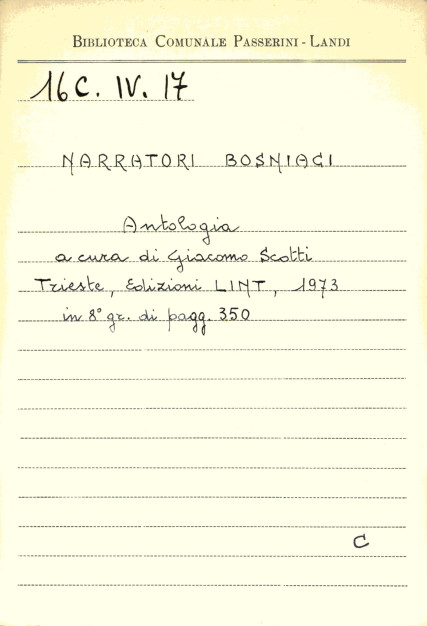 BIBLIOTECA COMUNALE PASSERINI - LANDI
16 C. IV. 17
NARRATORI BOSNIACI
Antologia
a cura di Giacomo Scotti
Trieste, Edizioni LINT, 1973
in 8° gr. di pagg. 350
C